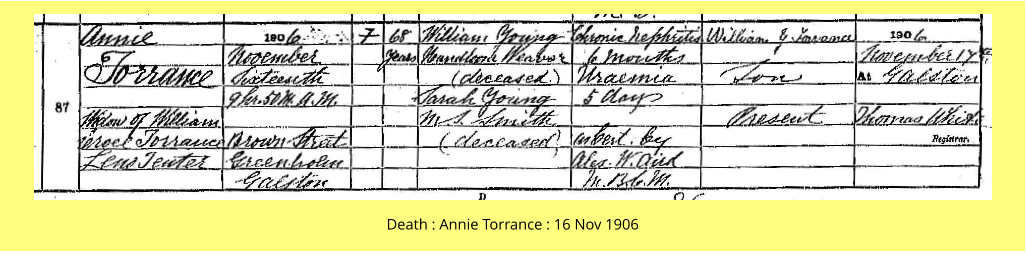 87
Annie
Torrance
Widow of William
Torrance
Lens Tenter
1906
November
Sixteenth
9 hr. 50 M. A.M.
Brown Street
Greenholm
Galston
F
68
Years
William Young
Handloom Weaver
(deceased)
Sarah Young
M.S. Smith
(deceased)
Chronic Nephritis
6 Months
Uraemia
5 days
as cert. by
Alex. W. Aird
M.B.C.M.
William Y Torrance
Son
Present
1906
November 17th
At Galston
Thomas White
Registrar.
Death : Annie Torrance : 16 Nov 1906